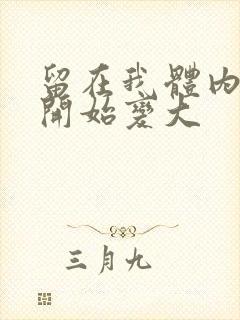 留在我體內
開始變大
三月九